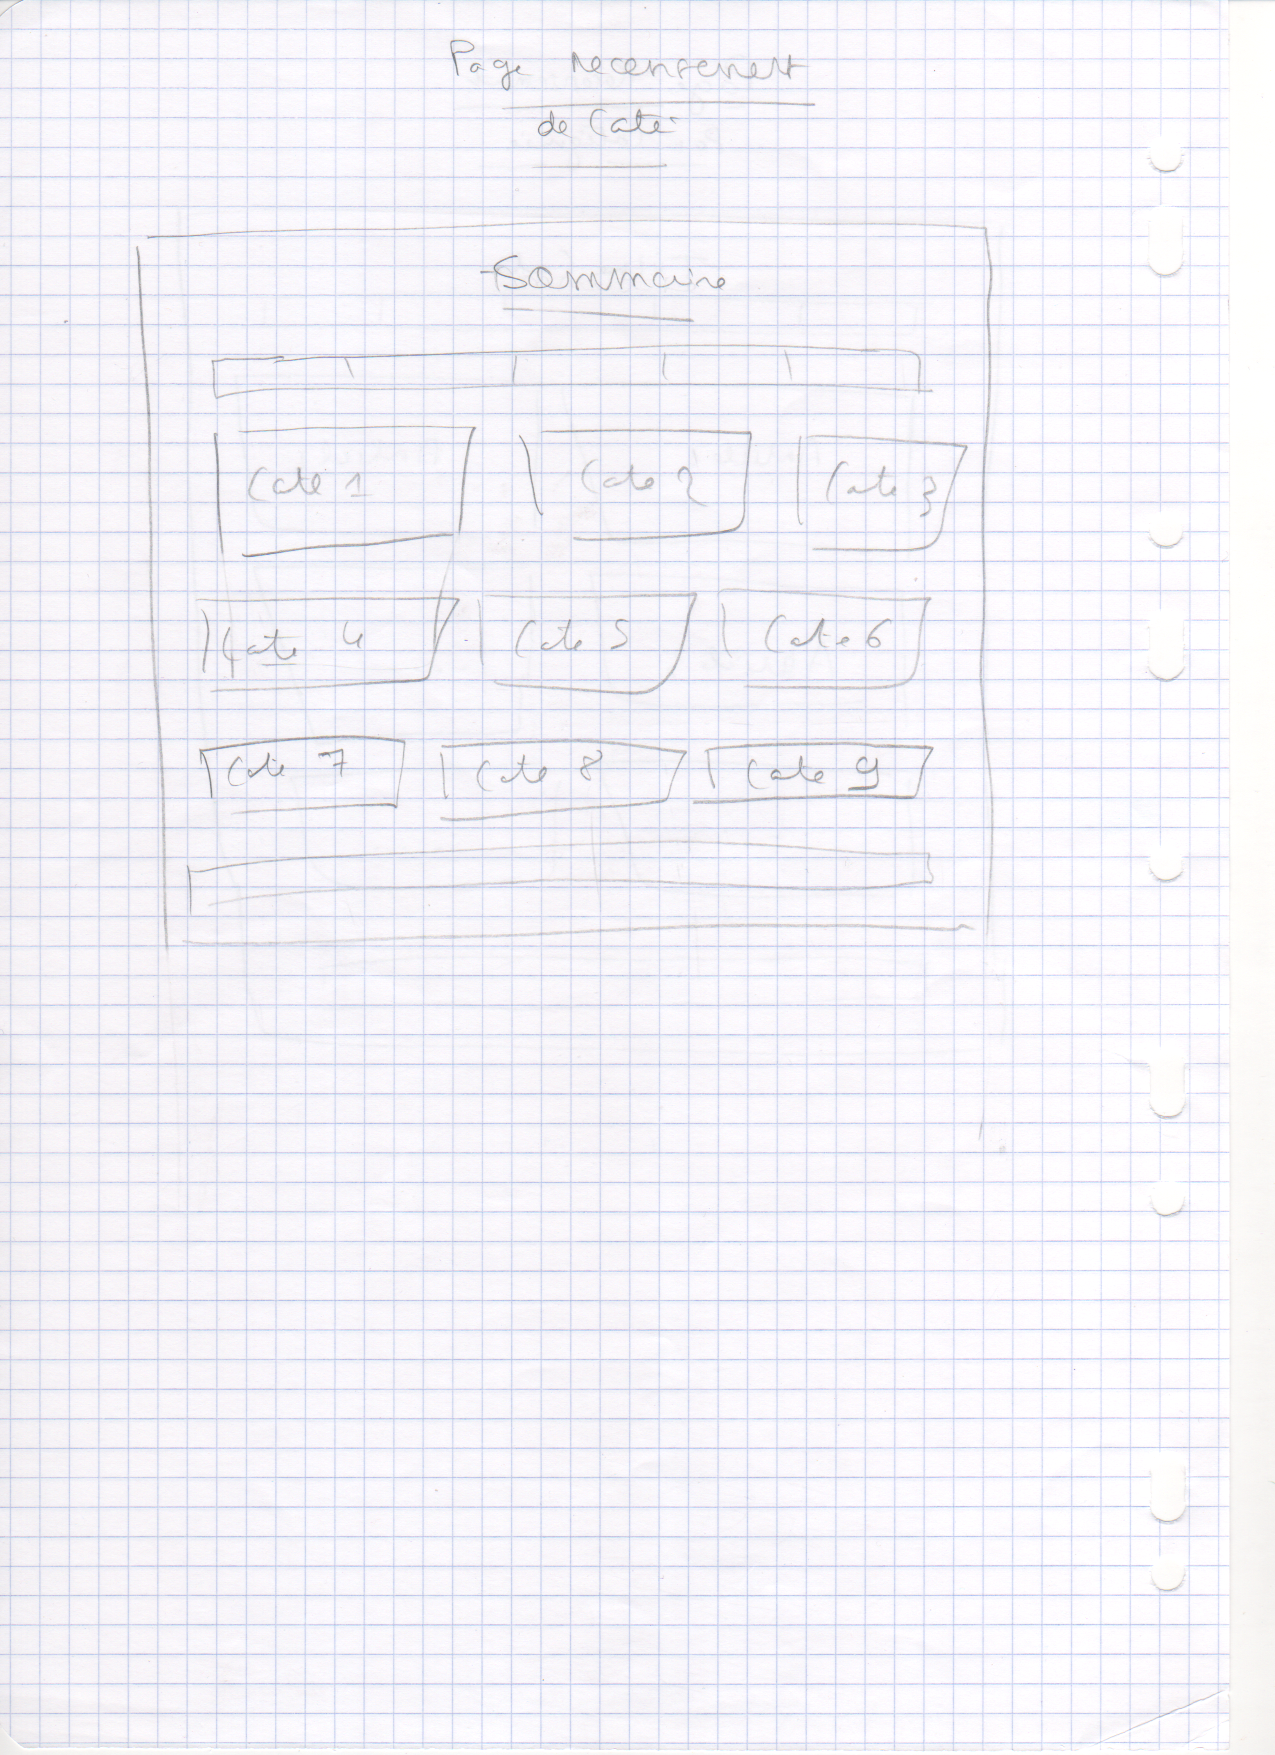 Page recensement
de Caté
Sommaire
Cate 1 Cate 2 Cate 3
Cate 4 Cate 5 Cate 6
Cate 7 Cate 8 Cate 9